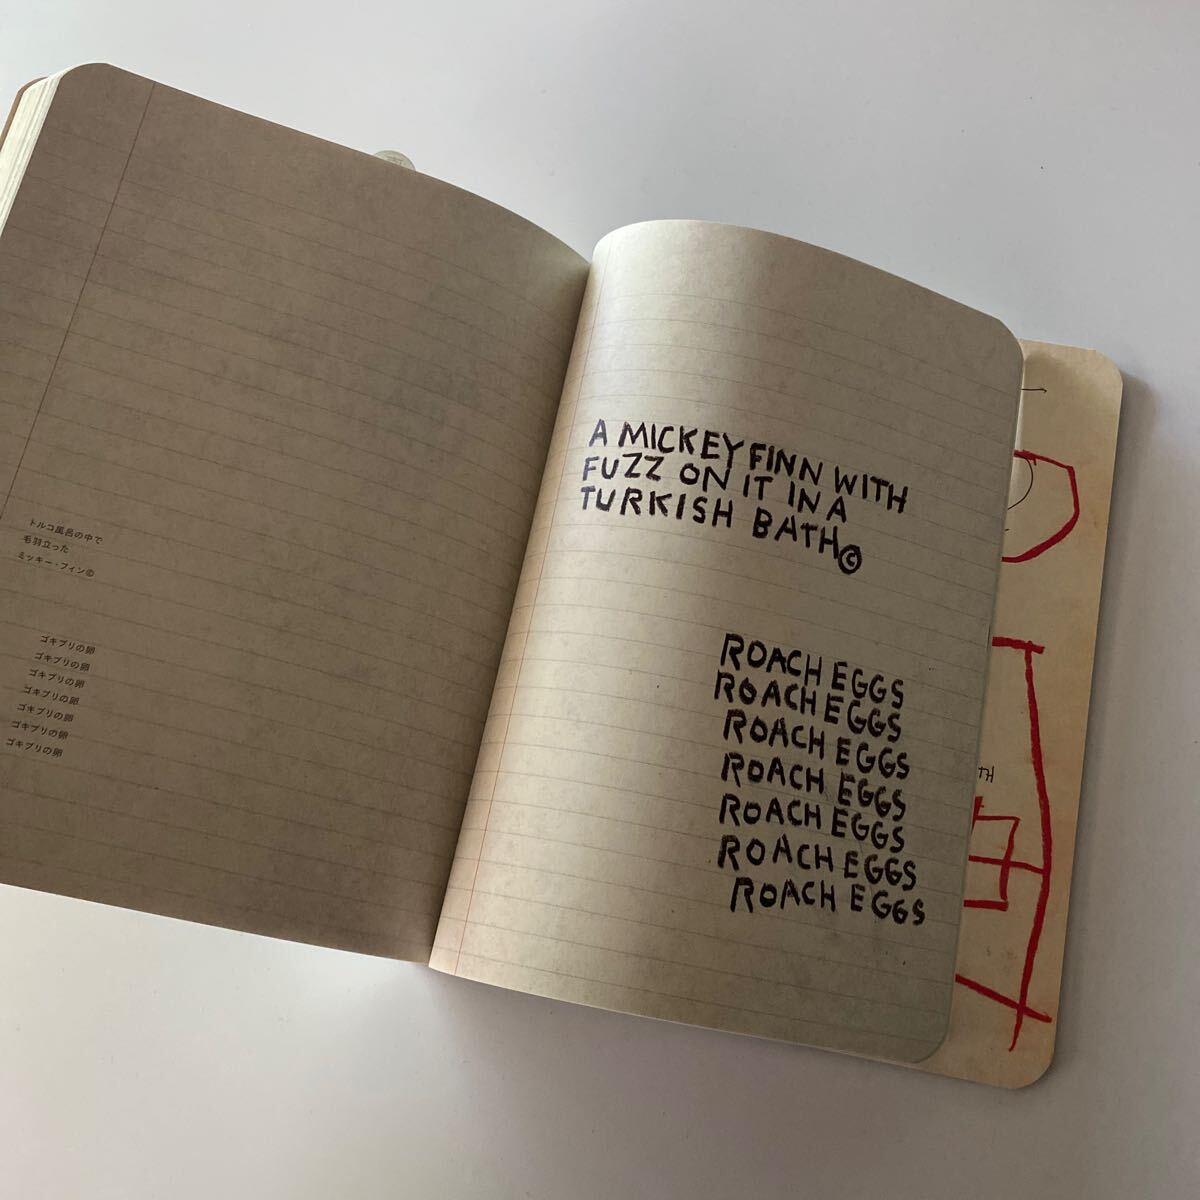 トルコ風呂の中で
毛羽立った
ミッキー・フィン©
ゴキブリの卵
ゴキブリの卵
ゴキブリの卵
ゴキブリの卵
ゴキブリの卵
ゴキブリの卵
ゴキブリの卵
A MICKEY FINN WITH
FUZZ ON IT IN A
TURKISH BATH©
ROACH EGGS
ROACH EGGS
ROACH EGGS
ROACH EGGS
ROACH EGGS
ROACH EGGS
ROACH EGGS
TH